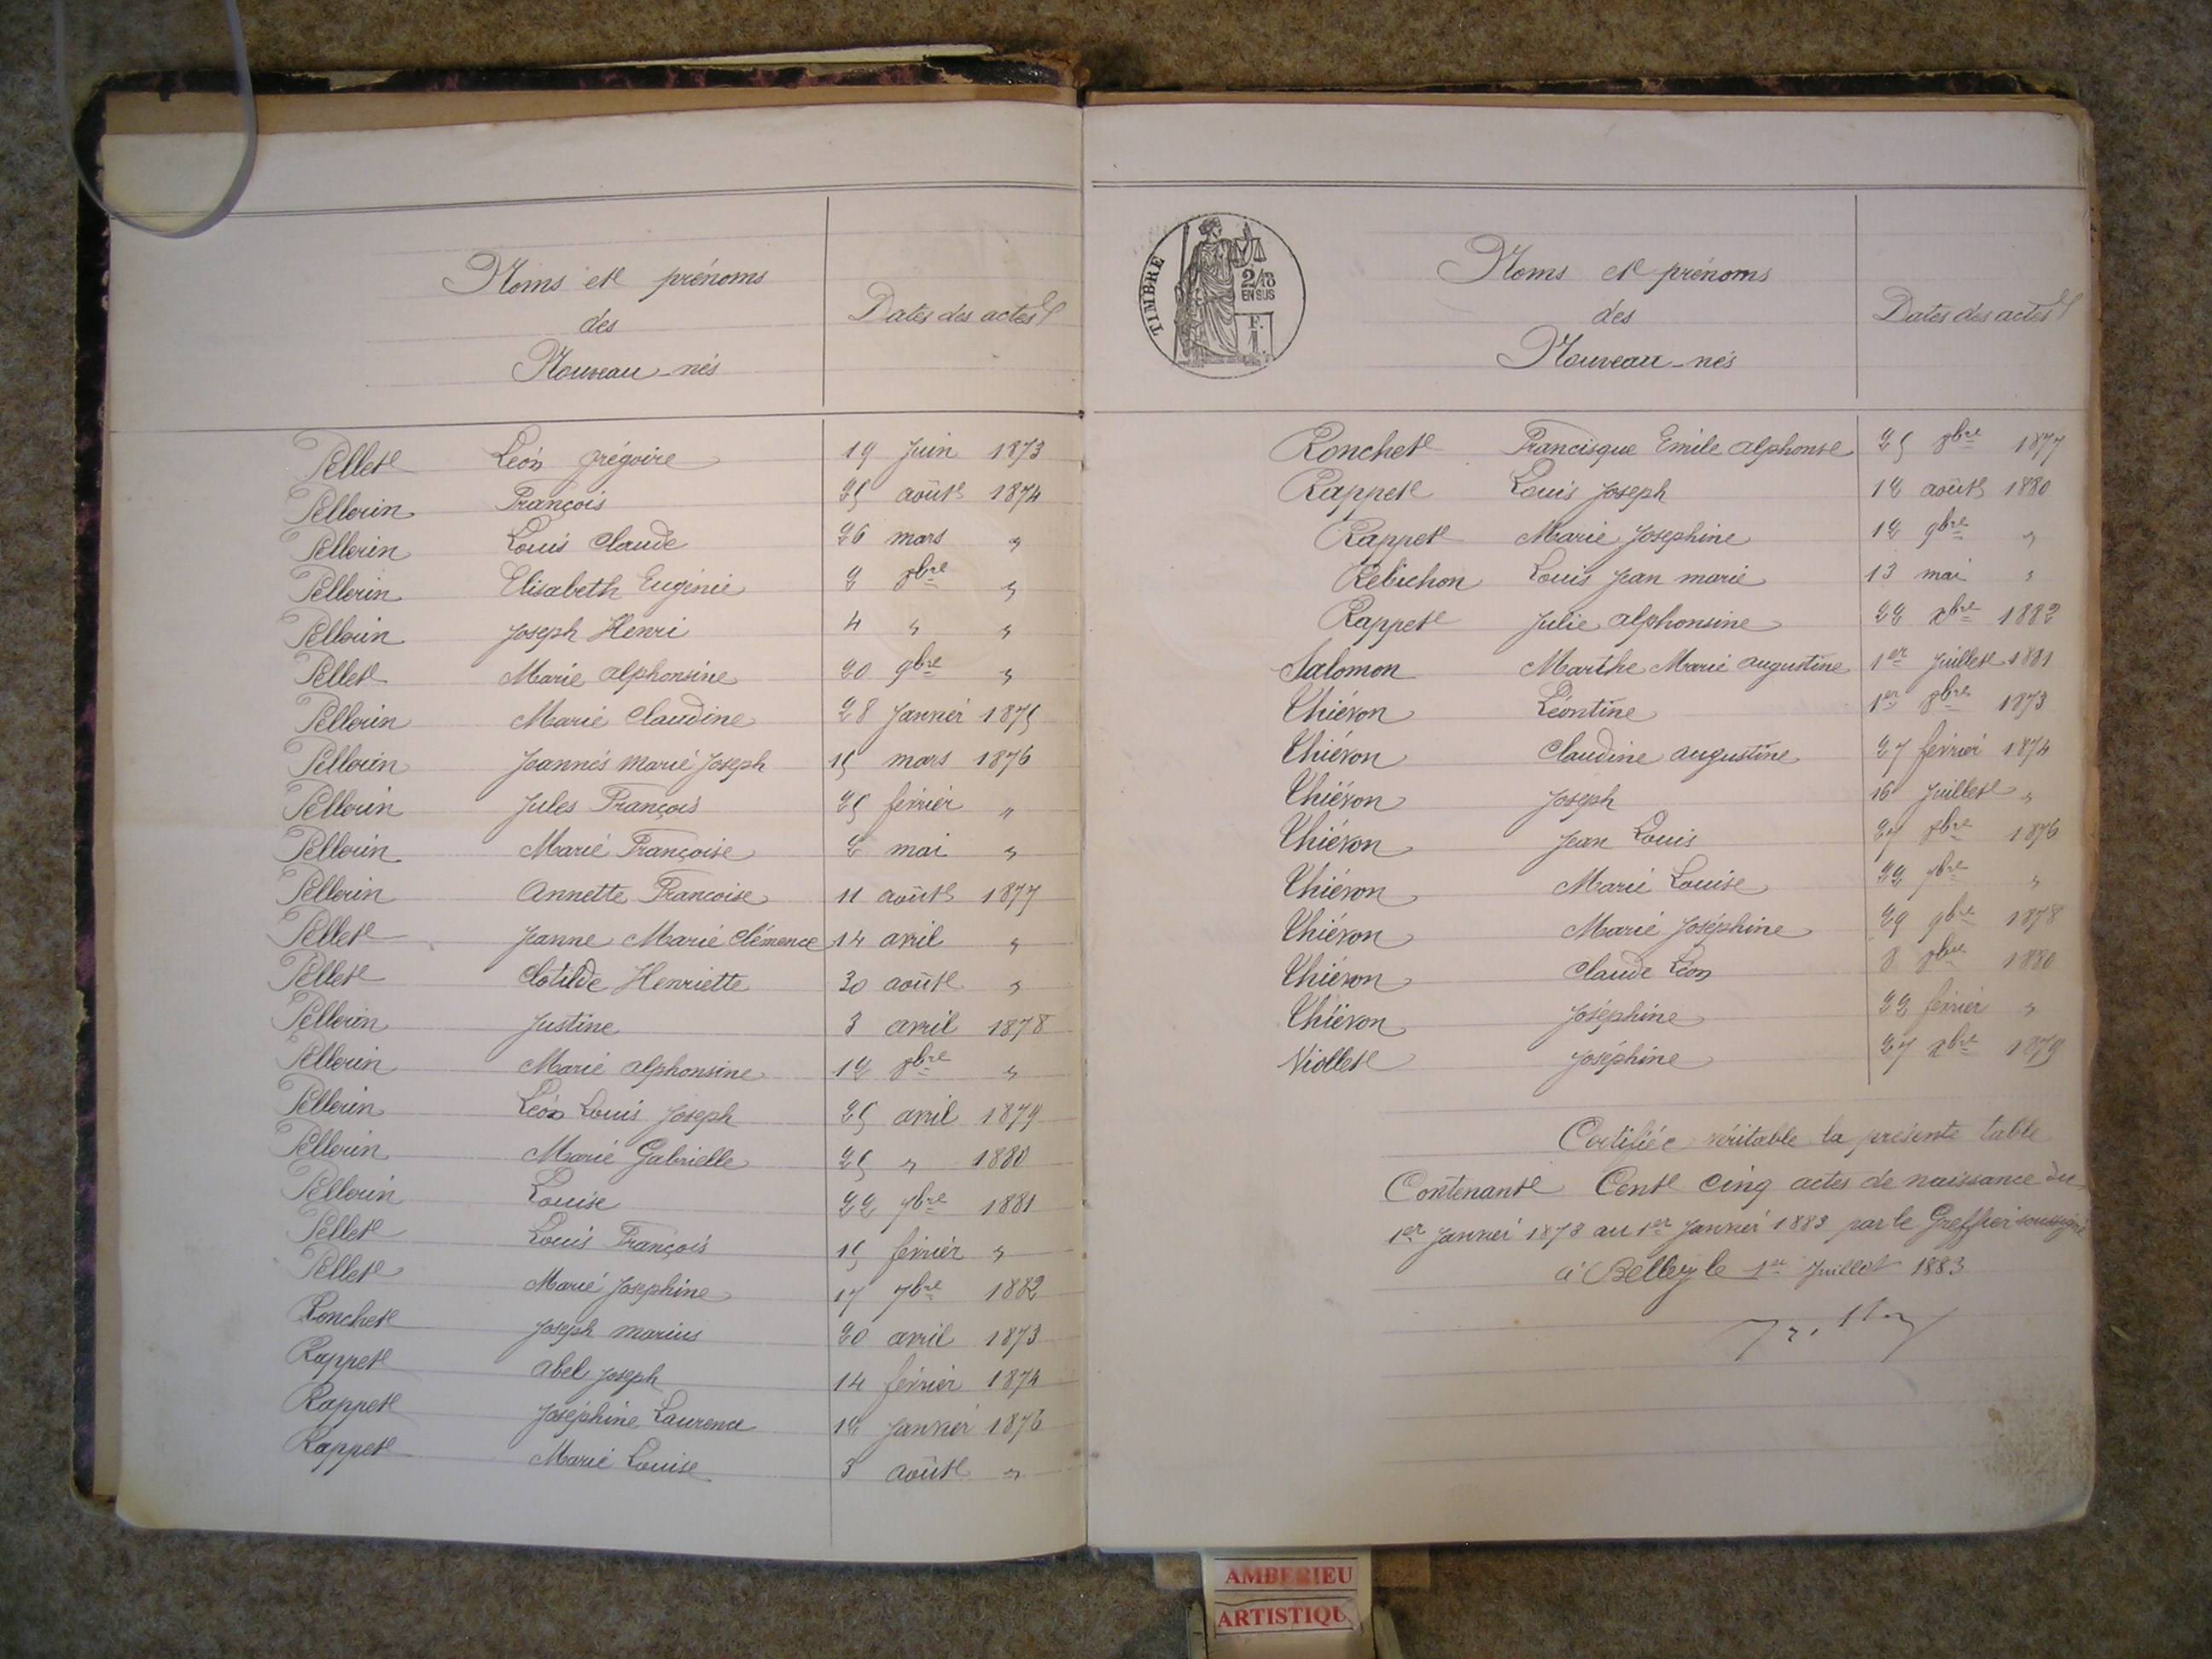 Noms et prénoms
des
Nouveau-nés
Dates des actes
Pellet Léon grégoire 19 Juin 1873
Pellerin François 25 août 1874
Pellerin Louis Claude 26 mars "
Pellerin Elisabeth Eugénie 2 8bre "
Pellerin Joseph Henri 4 " "
Pellet Marie alphonsine 20 9bre "
Pellerin Marie Claudine 28 Janvier 1875
Pellerin Joannès Marie Joseph 15 mars 1876
Pellerin Jules François 25 février "
Pellerin Marie Françoise 2 mai "
Pellerin Annette Francoise 11 août 1877
Pellet Jeanne Marie Clémence 14 avril "
Pellet Clotilde Henriette 30 août "
Pellerin Justine 3 avril 1878
Pellerin Marie alphonsine 12 8bre "
Pellerin Léon Louis Joseph 25 avril 1879
Pellerin Marie Gabrielle 25 " 1880
Pellerin Louise 22 7bre 1881
Pellet Louis François 15 février "
Pellet Marie Josephine 17 7bre 1882
Ronchet Joseph marius 20 avril 1873
Rappet abel Joseph 14 février 1874
Rappet Joséphine Laurence 12 Janvier 1876
Rappet Marie Louise 3 août "
TIMBRE
2/10
EN SUS
F.
1.
Noms et prénoms
des
Nouveau-nés
Dates des actes
Ronchet Francisque Emile alphonse 25 8bre 1877
Rappet Louis Joseph 12 août 1880
Rappet Marie Josephine 12 9bre "
Rebichon Louis Jean marie 13 mai "
Rappet Julie alphonsine 22 xbre 1882
Salomon Marthe Marie augustine 1er Juillet 1881
Thiévon Léontine 1er 8bre 1873
Thiévon Claudine augustine 27 février 1874
Thiévon Joseph 16 Juillet "
Thiévon Jean Louis 27 8bre 1876
Thiévon Marie Louise 22 7bre "
Thiévon Marie Joséphine 29 9bre 1878
Thiévon Claude Léon 8 8bre 1880
Thiévon Joséphine 22 février "
Viollet Joséphine 27 xbre 1879
Certifiée véritable la présente table
Contenant Cent cinq actes de naissance du
1er Janvier 1873 au 1er Janvier 1883 par le Greffier soussigné
à Belley le 1er Juillet 1883
AMBERIEU
ARTISTIQU